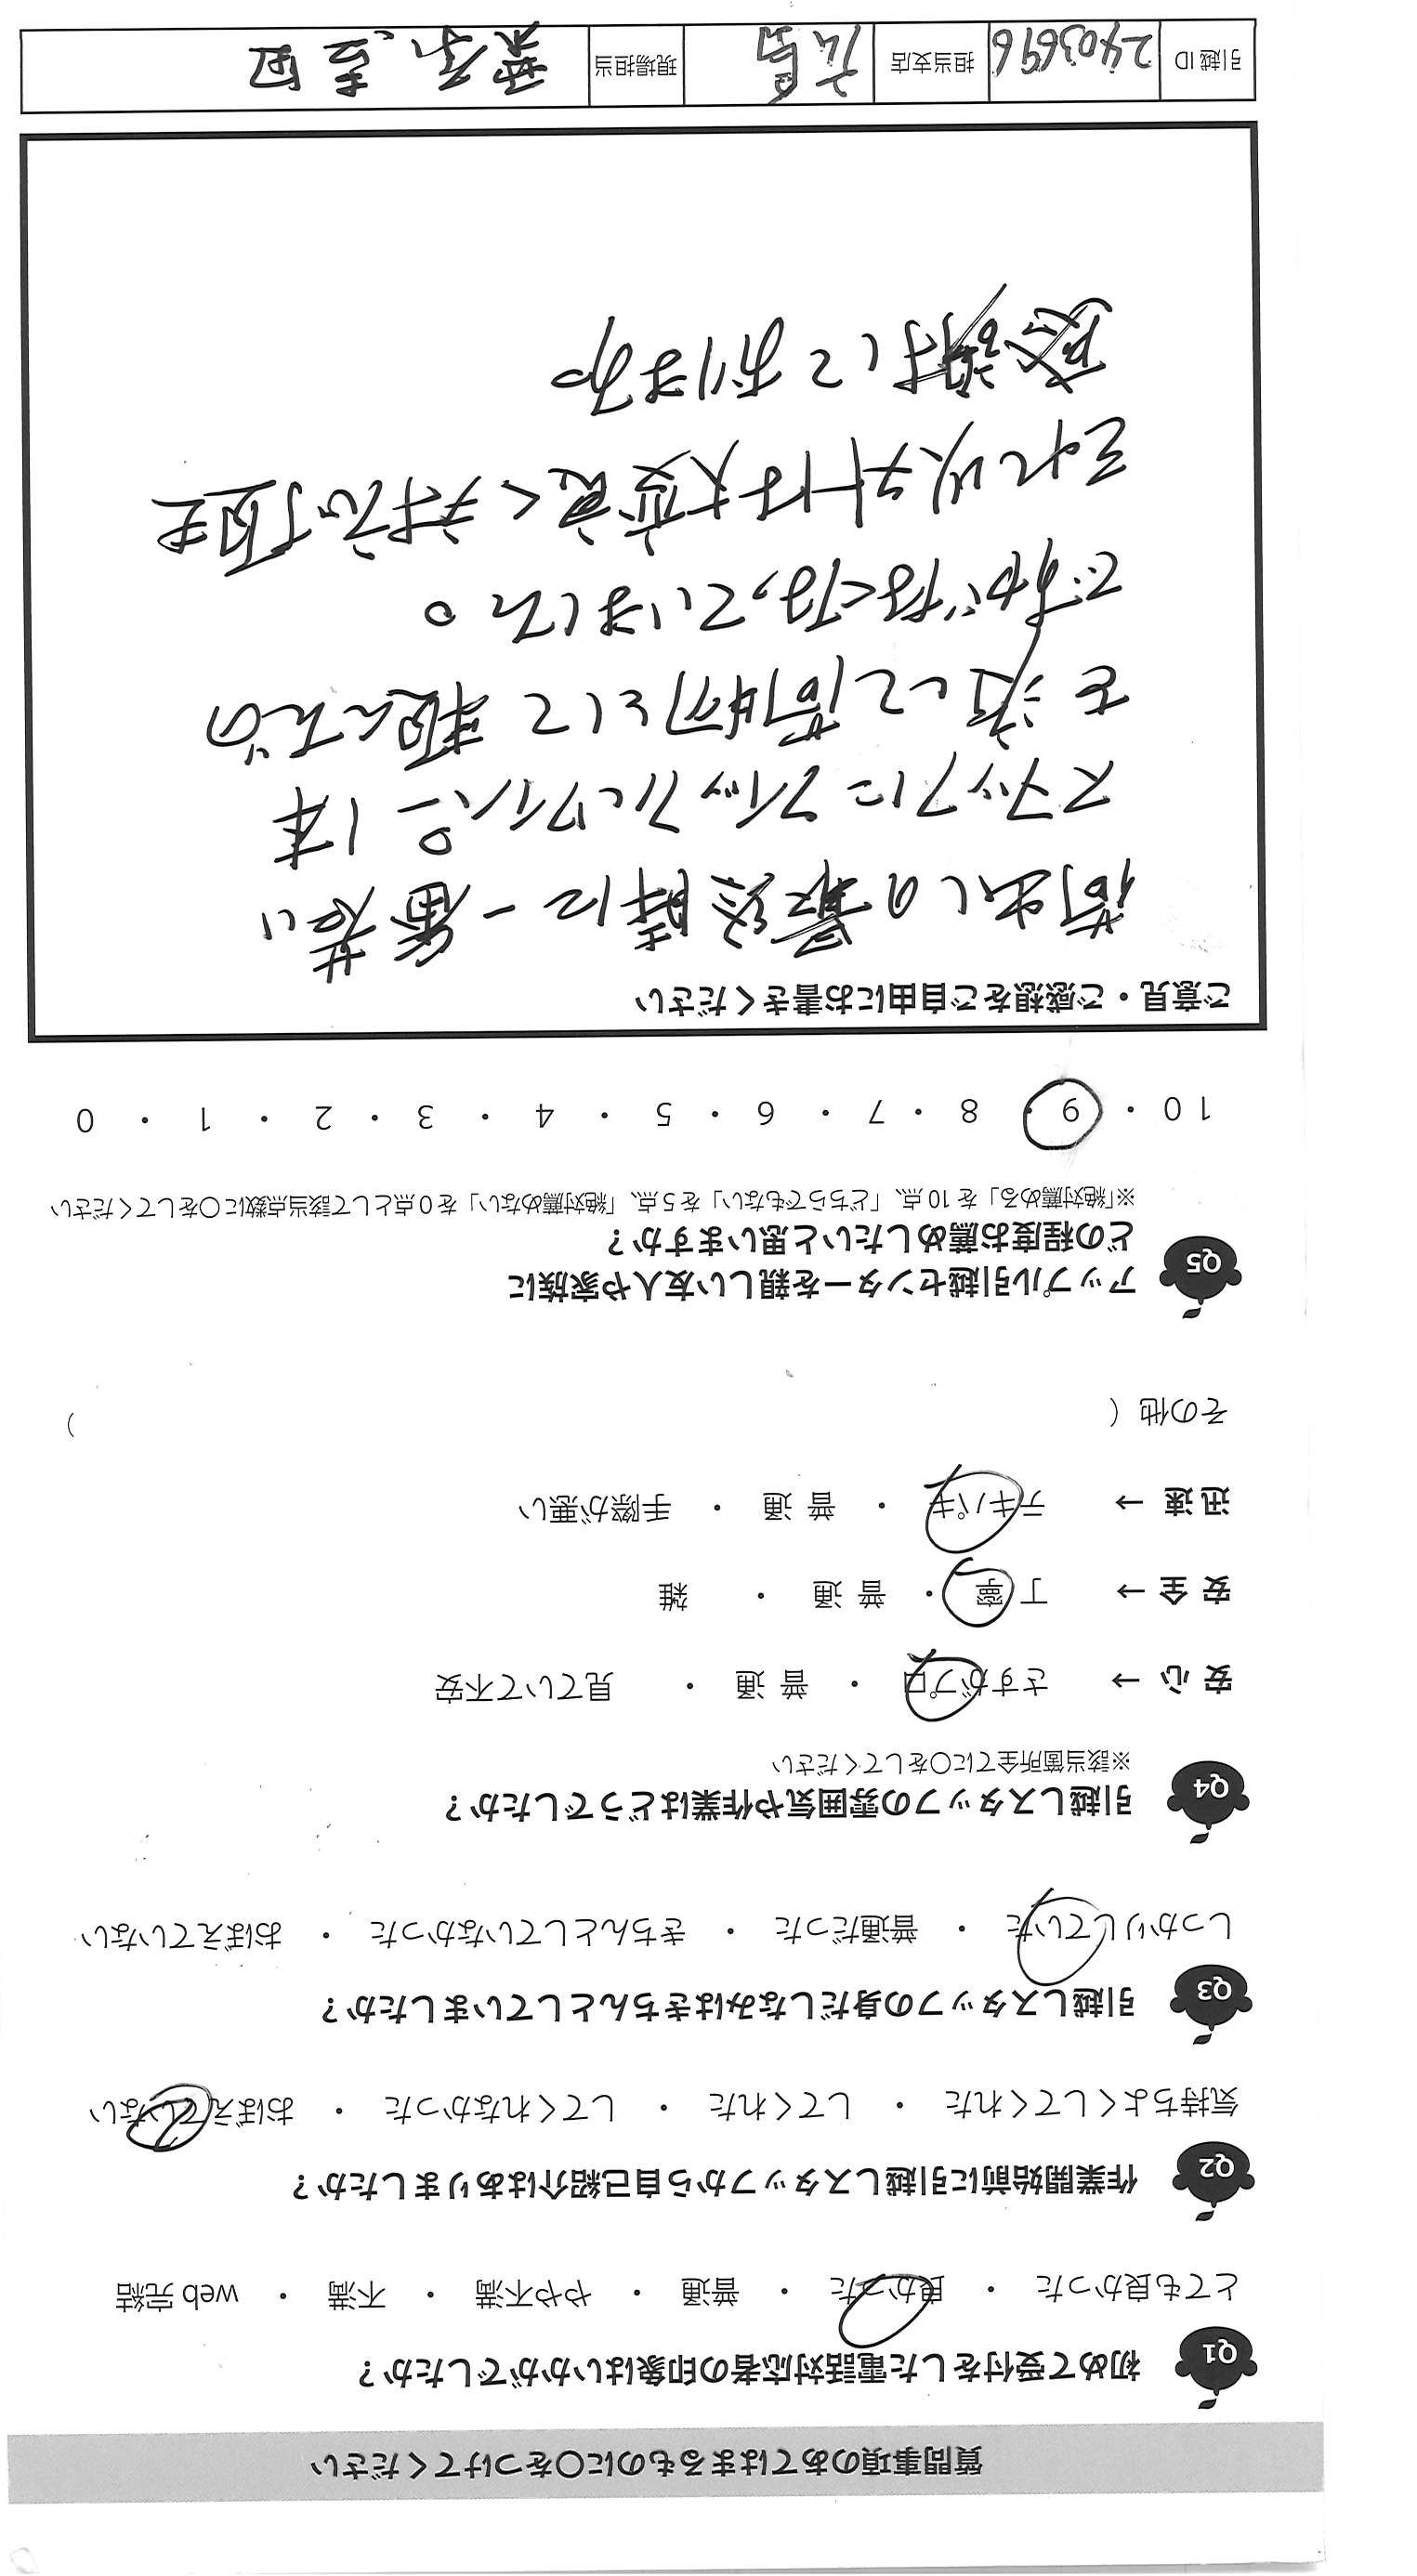 質問事項のあてはまるものに〇をつけてください
Q1 初めて受付をした電話対応者の印象はいかがでしたか？
とても良かった ・ 良かった ・ 普通 ・ やや不満 ・ 不満 ・ web 完結
Q2 作業開始前に引越しスタッフから自己紹介はありましたか？
気持ちよくしてくれた ・ してくれた ・ してくれなかった ・ おぼえていない
Q3 引越しスタッフの身だしなみはきちんとしていましたか？
しっかりしていた ・ 普通だった ・ きちんとしていなかった ・ おぼえていない
Q4 引越しスタッフの雰囲気や作業はどうでしたか？
※該当箇所全てに〇をしてください
安 心 → さすがプロ ・ 普 通 ・ 見ていて不安
安 全 → 丁 寧 ・ 普 通 ・ 雑
迅 速 → テキパキ ・ 普 通 ・ 手際が悪い
その他（ ）
Q5 アップル引越センターを親しい友人や家族に
どの程度お薦めしたいと思いますか？
※「絶対薦める」を 10 点、「どちらでもない」を 5 点、「絶対薦めない」を 0 点として該当点数に〇をしてください
10 ・ 9 ・ 8 ・ 7 ・ 6 ・ 5 ・ 4 ・ 3 ・ 2 ・ 1 ・ 0
ご意見・ご感想をご自由にお書きください
荷出しの最終時に一番若い
スタッフにクイックルワイパー1本
を渡して荷物として積んだの
ですがなくなっていました。
それ以外は大変良く対応頂き
感謝しております
引越 ID 2403696 担当支店 広島 現場担当 桑原、吉田